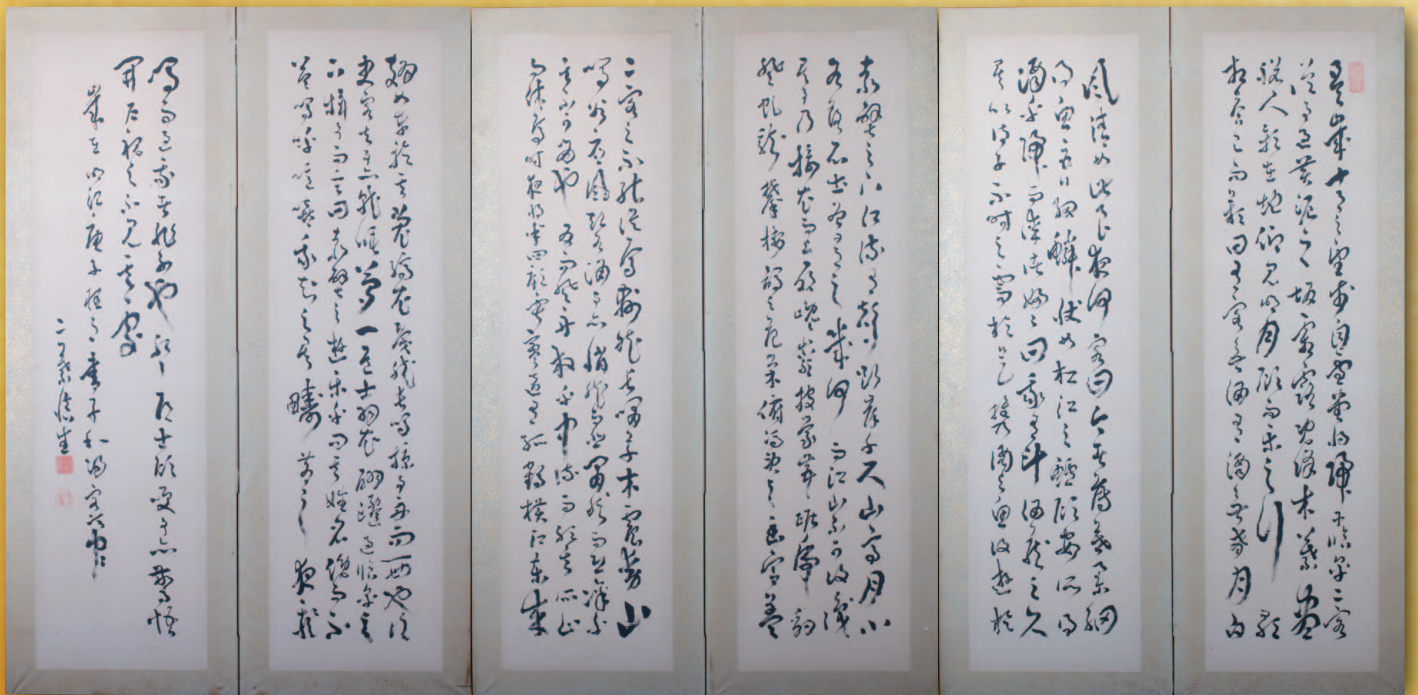 是歲十月之望步自雪堂將歸于臨皋二客
從予過黃泥之坂霜露既降木葉盡
脫人影在地仰見明月顧而樂之行歌
相答已而歎曰有客無酒有酒無肴月白
風清如此良夜何客曰今者薄暮舉網
得魚巨口細鱗狀如松江之鱸顧安所得
酒乎歸而謀諸婦婦曰我有斗酒藏之久
矣以待子不時之需於是攜酒與魚復遊於
赤壁之下江流有聲斷岸千尺山高月小
水落石出曾日月之幾何而江山不可復識
矣予乃攝衣而上履巉巖披蒙茸踞虎豹
登虬龍攀栖鶻之危巢俯馮夷之幽宮蓋
二客之不能從焉劃然長嘯草木震動山
鳴谷應風起水涌予亦悄然而悲肅然而恐凜乎
其不可留也反而登舟放乎中流聽其所止
而休焉時夜將半四顧寂寥適有孤鶴橫江東來
翅如車輪玄裳縞衣戛然長鳴掠予舟而西也須
臾客去予亦就睡夢一道士羽衣蹁躚過臨皋之
下揖予而言曰赤壁之遊樂乎問其姓名俛而不
答嗚呼噫嘻我知之矣疇昔之夜飛
鳴而過我者非子也耶道士顧笑予亦驚悟
開戶視之不見其處
歲在